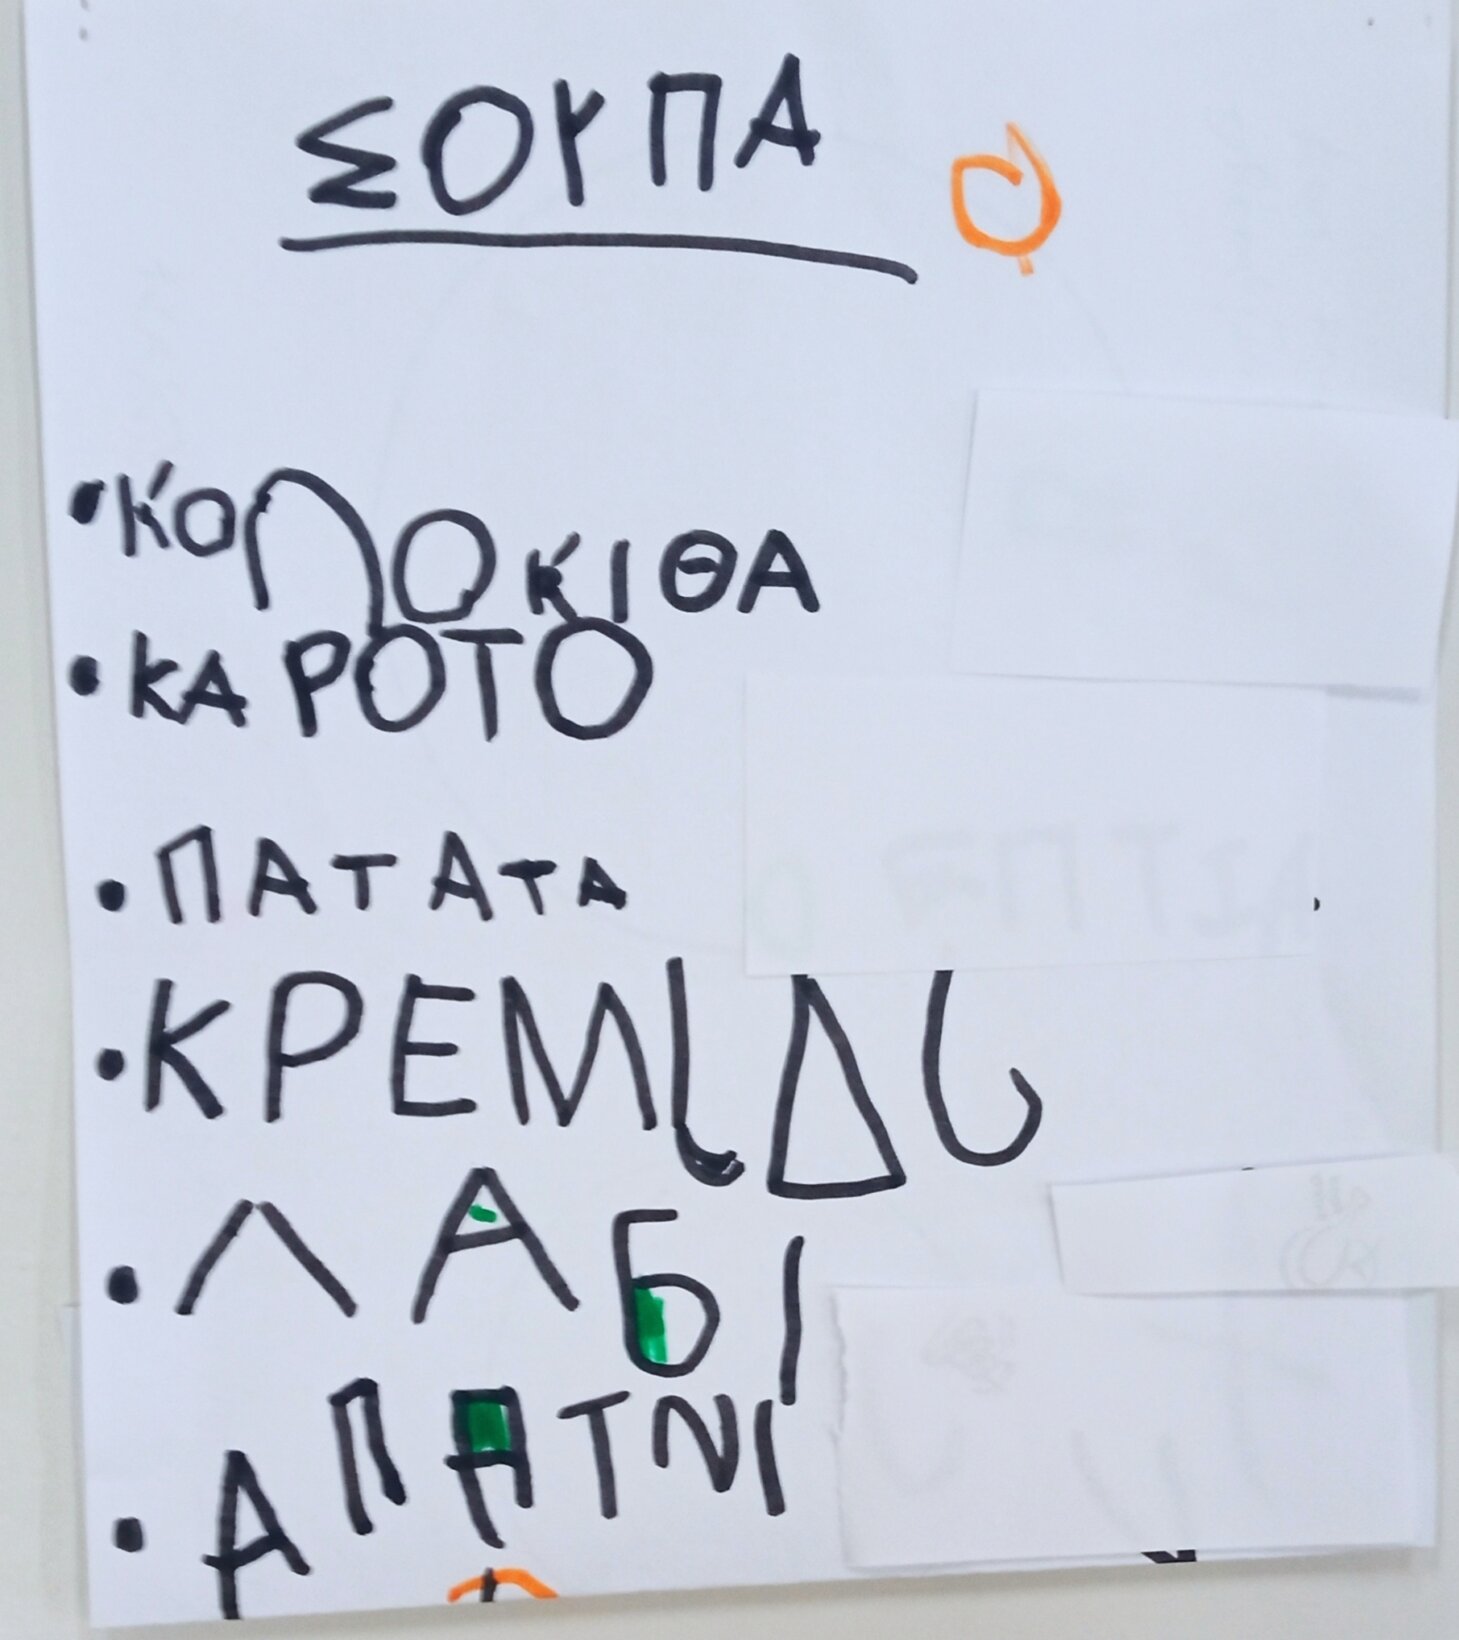 ΣΟΥΠΑ
•ΚΟΛΟΚΙΘΑ
•ΚΑΡΟΤΟ
•ΠΑΤΑΤΑ
•ΚΡΕΜΙΔΙ
•ΛΑБΙ
•ΑΠΑΤΝΙ